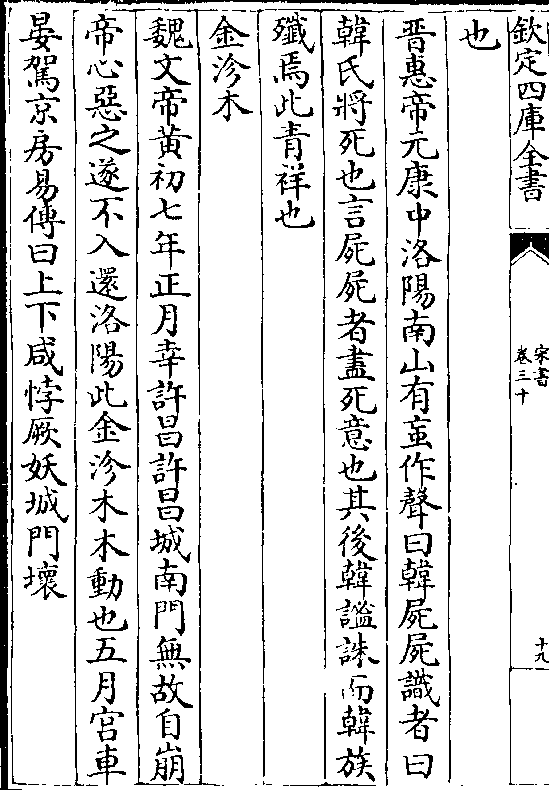 欽定四庫全書
宋書
卷三十
十九
也
晋惠帝元康中洛陽南山有䖟作聲曰韓屍屍識者曰
韓氏將死也言屍屍者盡死意也其後韓謐誅而韓族
殲焉此青祥也
金沴木
魏文帝黄初七年正月幸許昌許昌城南門無故自崩
帝心惡之遂不入還洛陽此金沴木木動也五月宫車
晏駕京房易傳曰上下咸悖厥妖城門壞